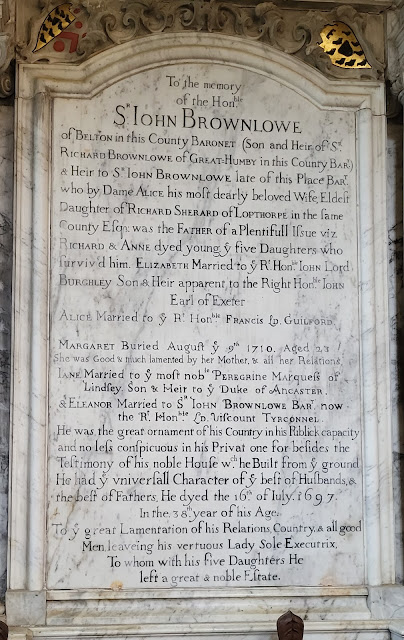 To the memory
of the Honble
Sr. IOHN BROWNLOWE
of BELTON in this County BARONET (Son and Heir of Sr.
RICHARD BROWNLOWE of GREAT-HUMBY in this County BART.)
& Heir to Sr. IOHN BROWNLOWE late of this Place BART.
who by DAME ALICE his most dearly beloved Wife, Eldest
Daughter of RICHARD SHERARD of LOPTHORPE in the same
County Esqr. was the FATHER of a Plentifull Issue viz
RICHARD & ANNE dyed young, ye five Daughters who
surviv'd him. ELIZABETH Married to ye Rt. Honble IOHN Lord
BURGHLEY Son & Heir apparent to the Right Honble IOHN
Earl of Exeter
ALICE Married to ye Rt. Honble FRANCIS LD. GUILFORD.
MARGARET Buried August ye 9th 1710. Aged 23
She was Good & much lamented by her Mother, & all her Relations,
IANE Married to ye most noble PEREGRINE Marquess of
Lindsey, Son & Heir to ye Duke of ANCASTER,
& ELEANOR Married to Sr. IOHN BROWNLOWE BART. now
the Rt. Honble LD. Viscount TYRCONNEL.
He was the great ornament of his Country in his Publick capacity
and no less conspicuous in his Privat one for besides the
Testimony of his noble House wch he Built from ye ground
He had ye vniversall Character of ye best of Husbands, &
the best of Fathers, He dyed the 16th of Iuly. 1697.
In the 38th year of his Age.
To ye great Lamentation of his Relations, Country, & all good
Men, leaveing his vertuous Lady Sole Executrix,
To whom with his five Daughters He
left a great & noble Estate.